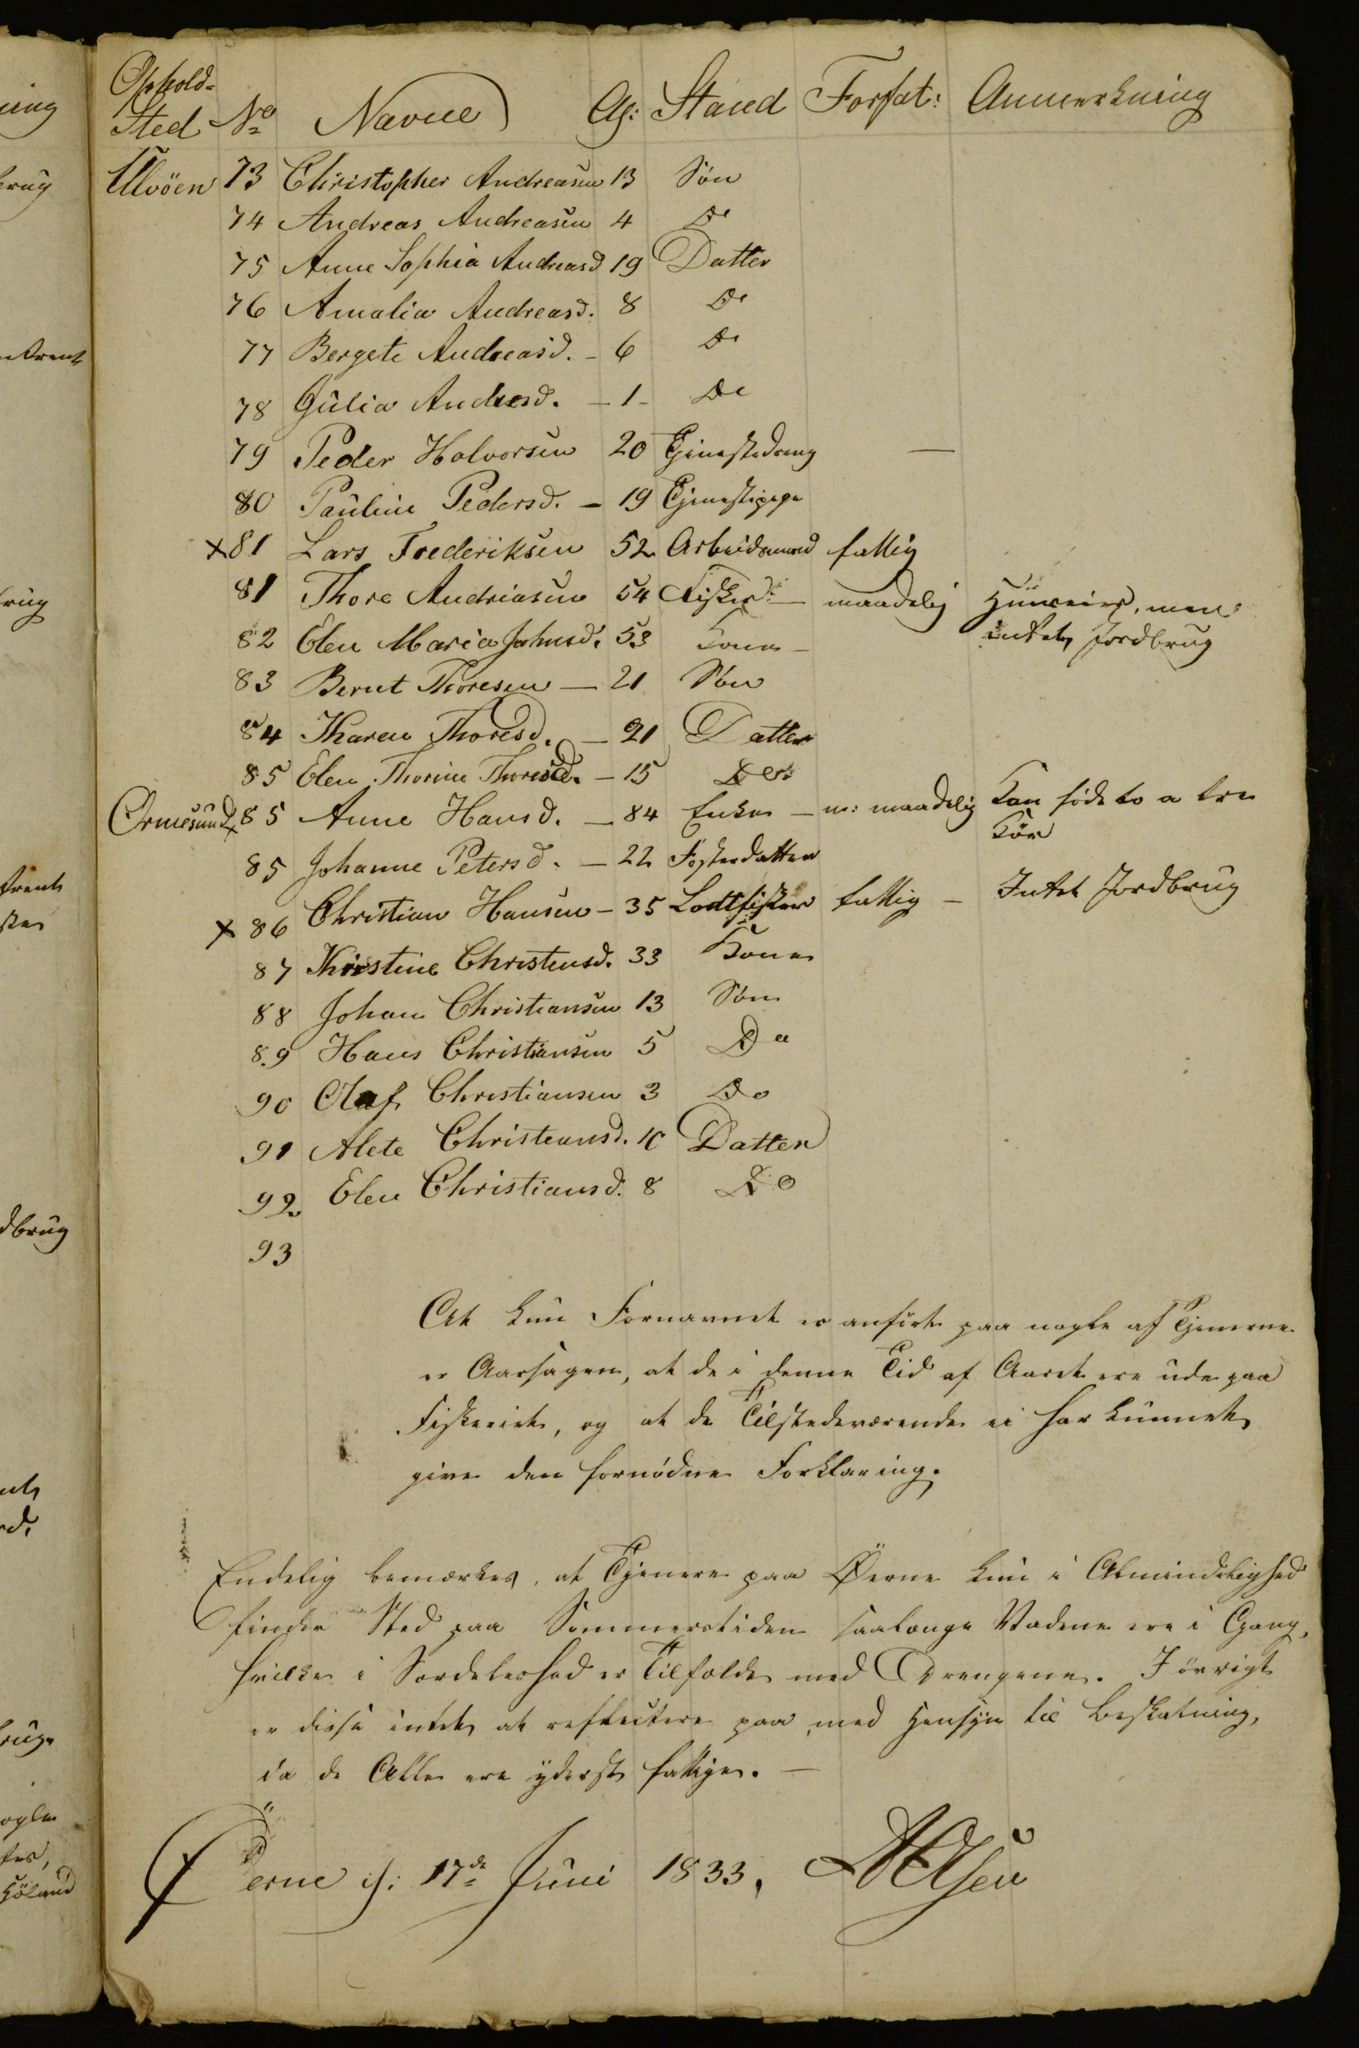 Ophold-
Sted No Navne Al: Stand Forfat: Anmerkning
Ulvöen 73 Christopher Andreasen 13 Søn
74 Andreas Andreasen 4 Do
75 Anne Sophia Andreasd 19 Datter
76 Amalia Andreasd. 8 Do
77 Bergete Andreasd. - 6 Do
78 Julia Andresd. - 1 - Do
79 Peder Halvorsen 20 Tjenestedreng —
80 Pauline Pedersd. - 19 Tjenestepige
x 81 Lars Frederiksen 52 Arbeidsmand fattig
81 Thore Andreasen 54 Fisker - maadelig Huuseier, men
intet Jordbrug
82 Elen Maria Johnsd. 53 Kone -
83 Bernt Thoresen - 21 Søn
84 Karen Thoresd. - 21 Datter
85 Elen Thorine Thoresd. - 15 Do
Ormesund x 85 Anne Hansd. - 84 Enke - m: maadelig Kan føde to a tre
Kør
85 Johanne Petersd. - 22 Fosterdatter
x 86 Christian Hansen - 35 Lodtfisker fattig - Intet Jordbrug
87 Kirstine Christensd. 33 Kone
88 Johan Christiansen 13 Søn
89 Hans Christiansen 5 Do
90 Olaf Christiansen 3 Do
91 Alete Christiansd. 10 Datter
92 Elen Christiansd. 8 Do
93
At kun Fornavnet er anført paa nogle af Tjenerne
er Aarsagen, at de i denne Tid af Aaret ere ude paa
Fiskeriet, og at de Tilstedeværende ei har kunnet
give den fornødne Forklaring.
Endelig bemærkes, at Tjenere paa Øerne kun i Almindelighed
finder Sted paa Sommerstiden saalænge Vadene ere i Gang,
hvilke i Særdeleshed er Tilfælde med Drengene. I øvrigt
er disse intet at reflectere paa med Hensyn til Beskatning,
da de Alle ere yderst fattige. —
Øerne d: 17de Juni 1833.